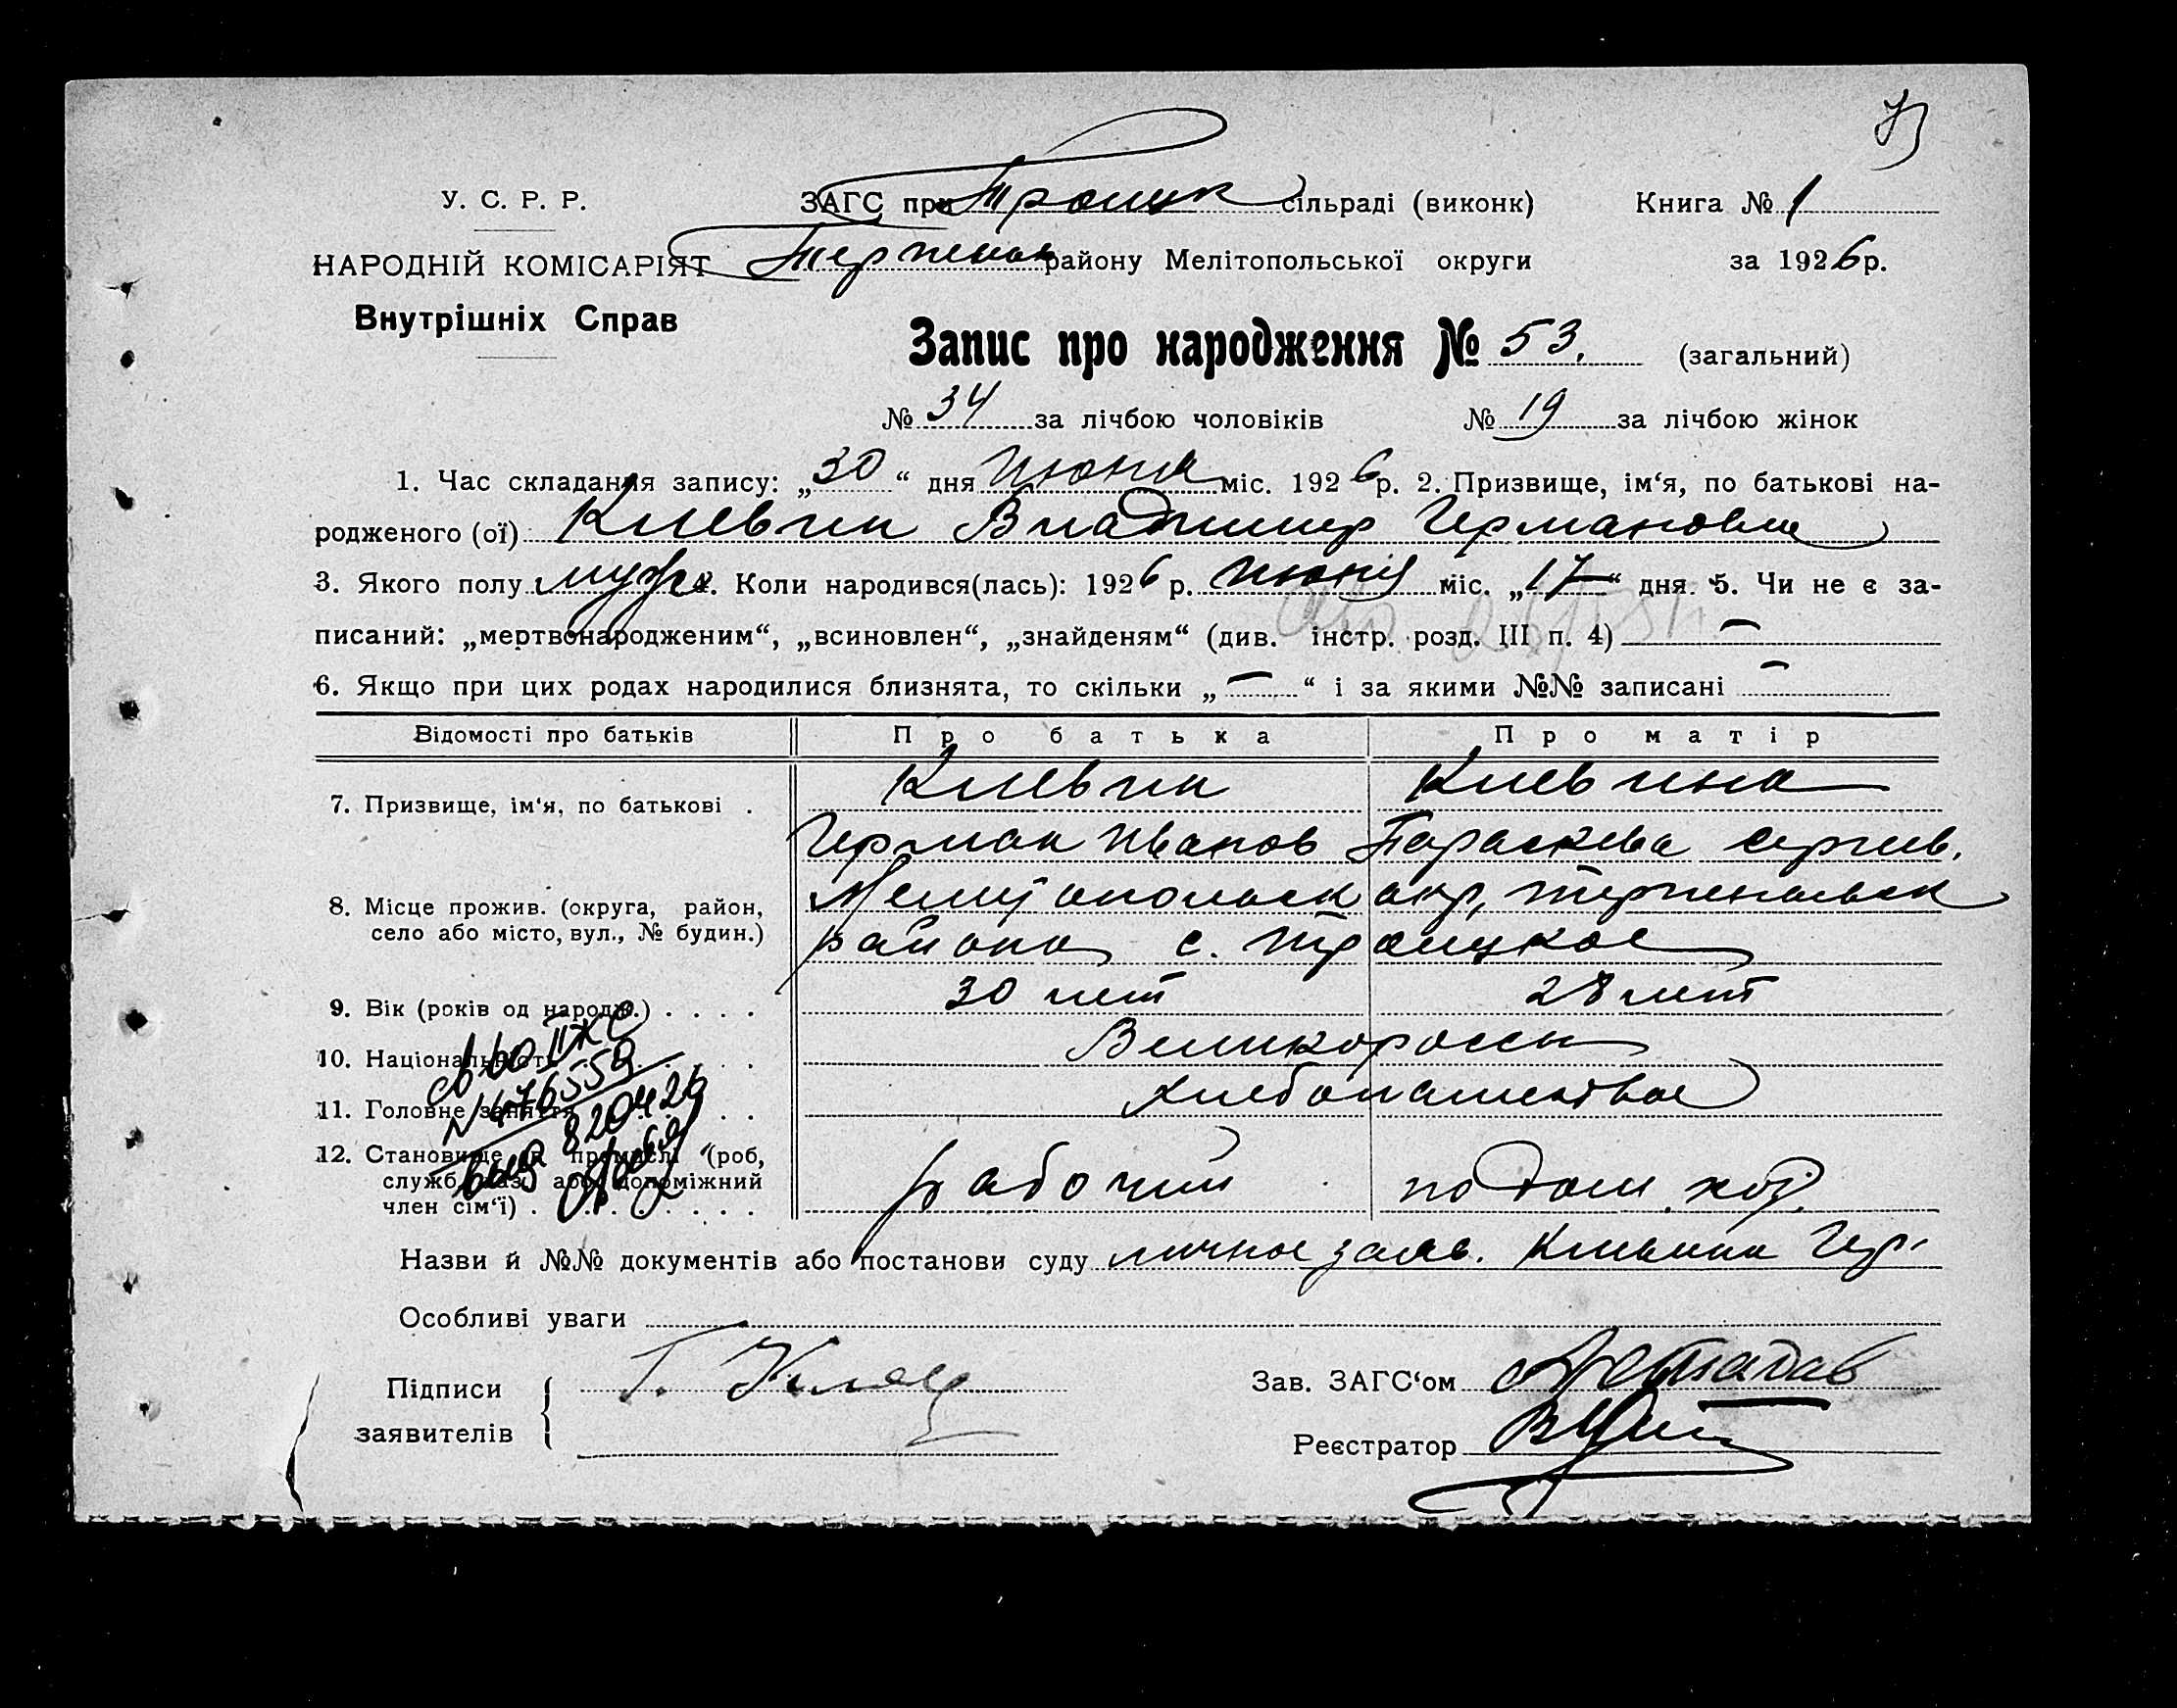 У. С. Р. Р. ЗАГС при Троицк сільраді (виконк) Книга № 1
НАРОДНІЙ КОМІСАРІЯТ Терпеньев району Мелітопольської округи за 1926 р.
Внутрішніх Справ
Запис про народження № 53. (загальний)
№ 34 за лічбою чоловіків № 19 за лічбою жінок
1. Час складання запису: „30“ дня июня міс. 1926 р. 2. Призвище, ім‘я, по батькові на-
родженого (ої) Клевцин Владимир Германович
3. Якого полу муж. 4. Коли народився(лась): 1926 р. июня міс. „17“ дня. 5. Чи не є за-
писаний: „мертвонародженим“, „всиновлен“, „знайденям“ (див. інстр. розд. III п. 4) —
6. Якщо при цих родах народилися близнята, то скільки „—“ і за якими №№ записані —
Відомості про батьків Про батька Про матір
7. Призвище, ім‘я, по батькові .
Герман Иванов Параскева Сергеев.
8. Місце прожив. (округа, район, Мелитопольск окр, Терпеньевск
село або місто, вул., № будин.) района с. Троицкое
9. Вік (років од народж.) . . . . 30 лет 28 лет
10. Національність . . . . Великороссы
11. Головне заняття . . . . хлебопашество
12. Становище в промислі (роб,
служб, хаз, або допоміжний рабочий по дом. хоз.
член сім‘ї) . . . . . .
N 476559
820426
Назви й №№ документів або постанови суду личное заяв. Гер.
Особливі уваги
Підписи Г. Зав. ЗАГС‘ом
заявителів Реєстратор